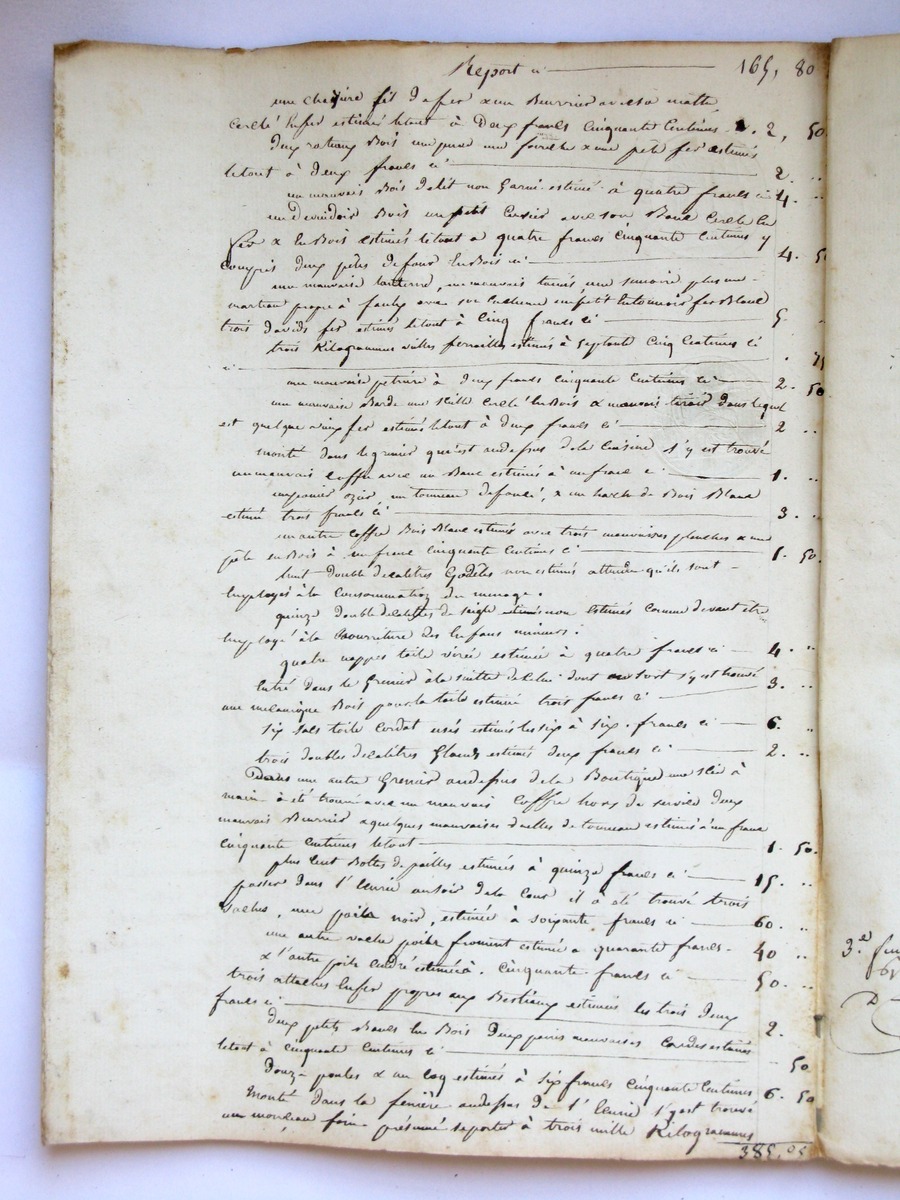 Report ci 165, 80
une chaudière fil de fer & un Beurrier avec sa
cerclé en fer estimé letout à Deux francs Cinquante Centimes 2, 50
deux rateaux Bois une une & une pele fer estimés
letout à deux francs ci 2. ..
un mauvais Bois delit non Garni estimé à quatre francs ci 4. ..
un Devidoir Bois un petit Cuvier avec son Banc Cerclé En
fer & En Bois estimés letout a quatre francs cinquante Centimes y
compris deux peles de four En Bois ci 4. 5
une mauvaise lanterne, un mauvais tamis, une plus une
marteau propre à faulx avec son Enclume un petit Entonnoir fer Blanc
trois davids fer estimés letout à Cinq francs ci 5.
trois Kilogrammes vielles ferrailles estimés à Septante Cinq Centimes ci
ci . 75
une mauvaise petriere à deux francs cinquante Centimes ci 2. 50
une mauvaise Barde une Seille cerclé En Bois & mauvais tiroir Dans lequel
est quelque peu fer estimés letout à deux francs ci 2 ..
monté dans le grenier qui est audessus de la Cuisine s'y est trouvé
un mauvais Coffre avec un Banc estimé à un franc ci 1. ..
un panier ozier, un tonneau defoncé, & un de Bois Blanc
estimé trois francs ci 3. ..
un autre Coffre Bois Blanc estimé avec trois mauvaises planches & une
pele en Bois à un franc cinquante Centimes ci 1. 50.
huit double decalitres non estimés attendu qu'ils sont
Employés à la Consommation du menage.
quinze double decalitres de seigle non Estimés comme devant etre
Employé à la Nourriture des Enfans mineurs.
quatre nappes toile estimée à quatre francs ci 4. ..
Entré dans le Grenier à la suitte de celui dont on sort s'y est trouvé
une mecanique Bois pour la toile estimée trois francs ci 3. ..
Six Sacs toile Cordat usés estimé les six à Six francs ci 6. ..
trois doubles decalitres Glands estimés deux francs ci 2. ..
Dans une autre Grenier audessus de la Boutique une Scie à
main à été trouvé avec un mauvais Coffre hors de service deux
mauvais Beurrier & quelques mauvaises duelles de tonneau estimé à un franc
cinquante Centimes letout 1. 50.
plus Cent Bottes de pailles estimées à quinze francs ci 15. ..
passer dans l'Ecurie au soir de la Cour il a été trouvé trois
Vaches, une poile noir, estimée à Soixante francs ci 60. ..
une autre vache poile froment estimée a quarante francs 40 ..
& l'autre poile estimée à Cinquante francs ci 50. ..
trois attaches En fer propres aux Bestiaux estimées les trois Deux
francs ci 2.
Deux petits Bancs En Bois Deux paires mauvaises Cordes estimés
letout à cinquante Centimes ci 50
Douze poules & un Coq estimés à Six francs Cinquante Centimes 6. 50
Monté dans la feniere audessus de l'Ecurie s'y est trouvé
un morceau foin présumé se porter à trois mille Kilogrammes
385, 05
3.e